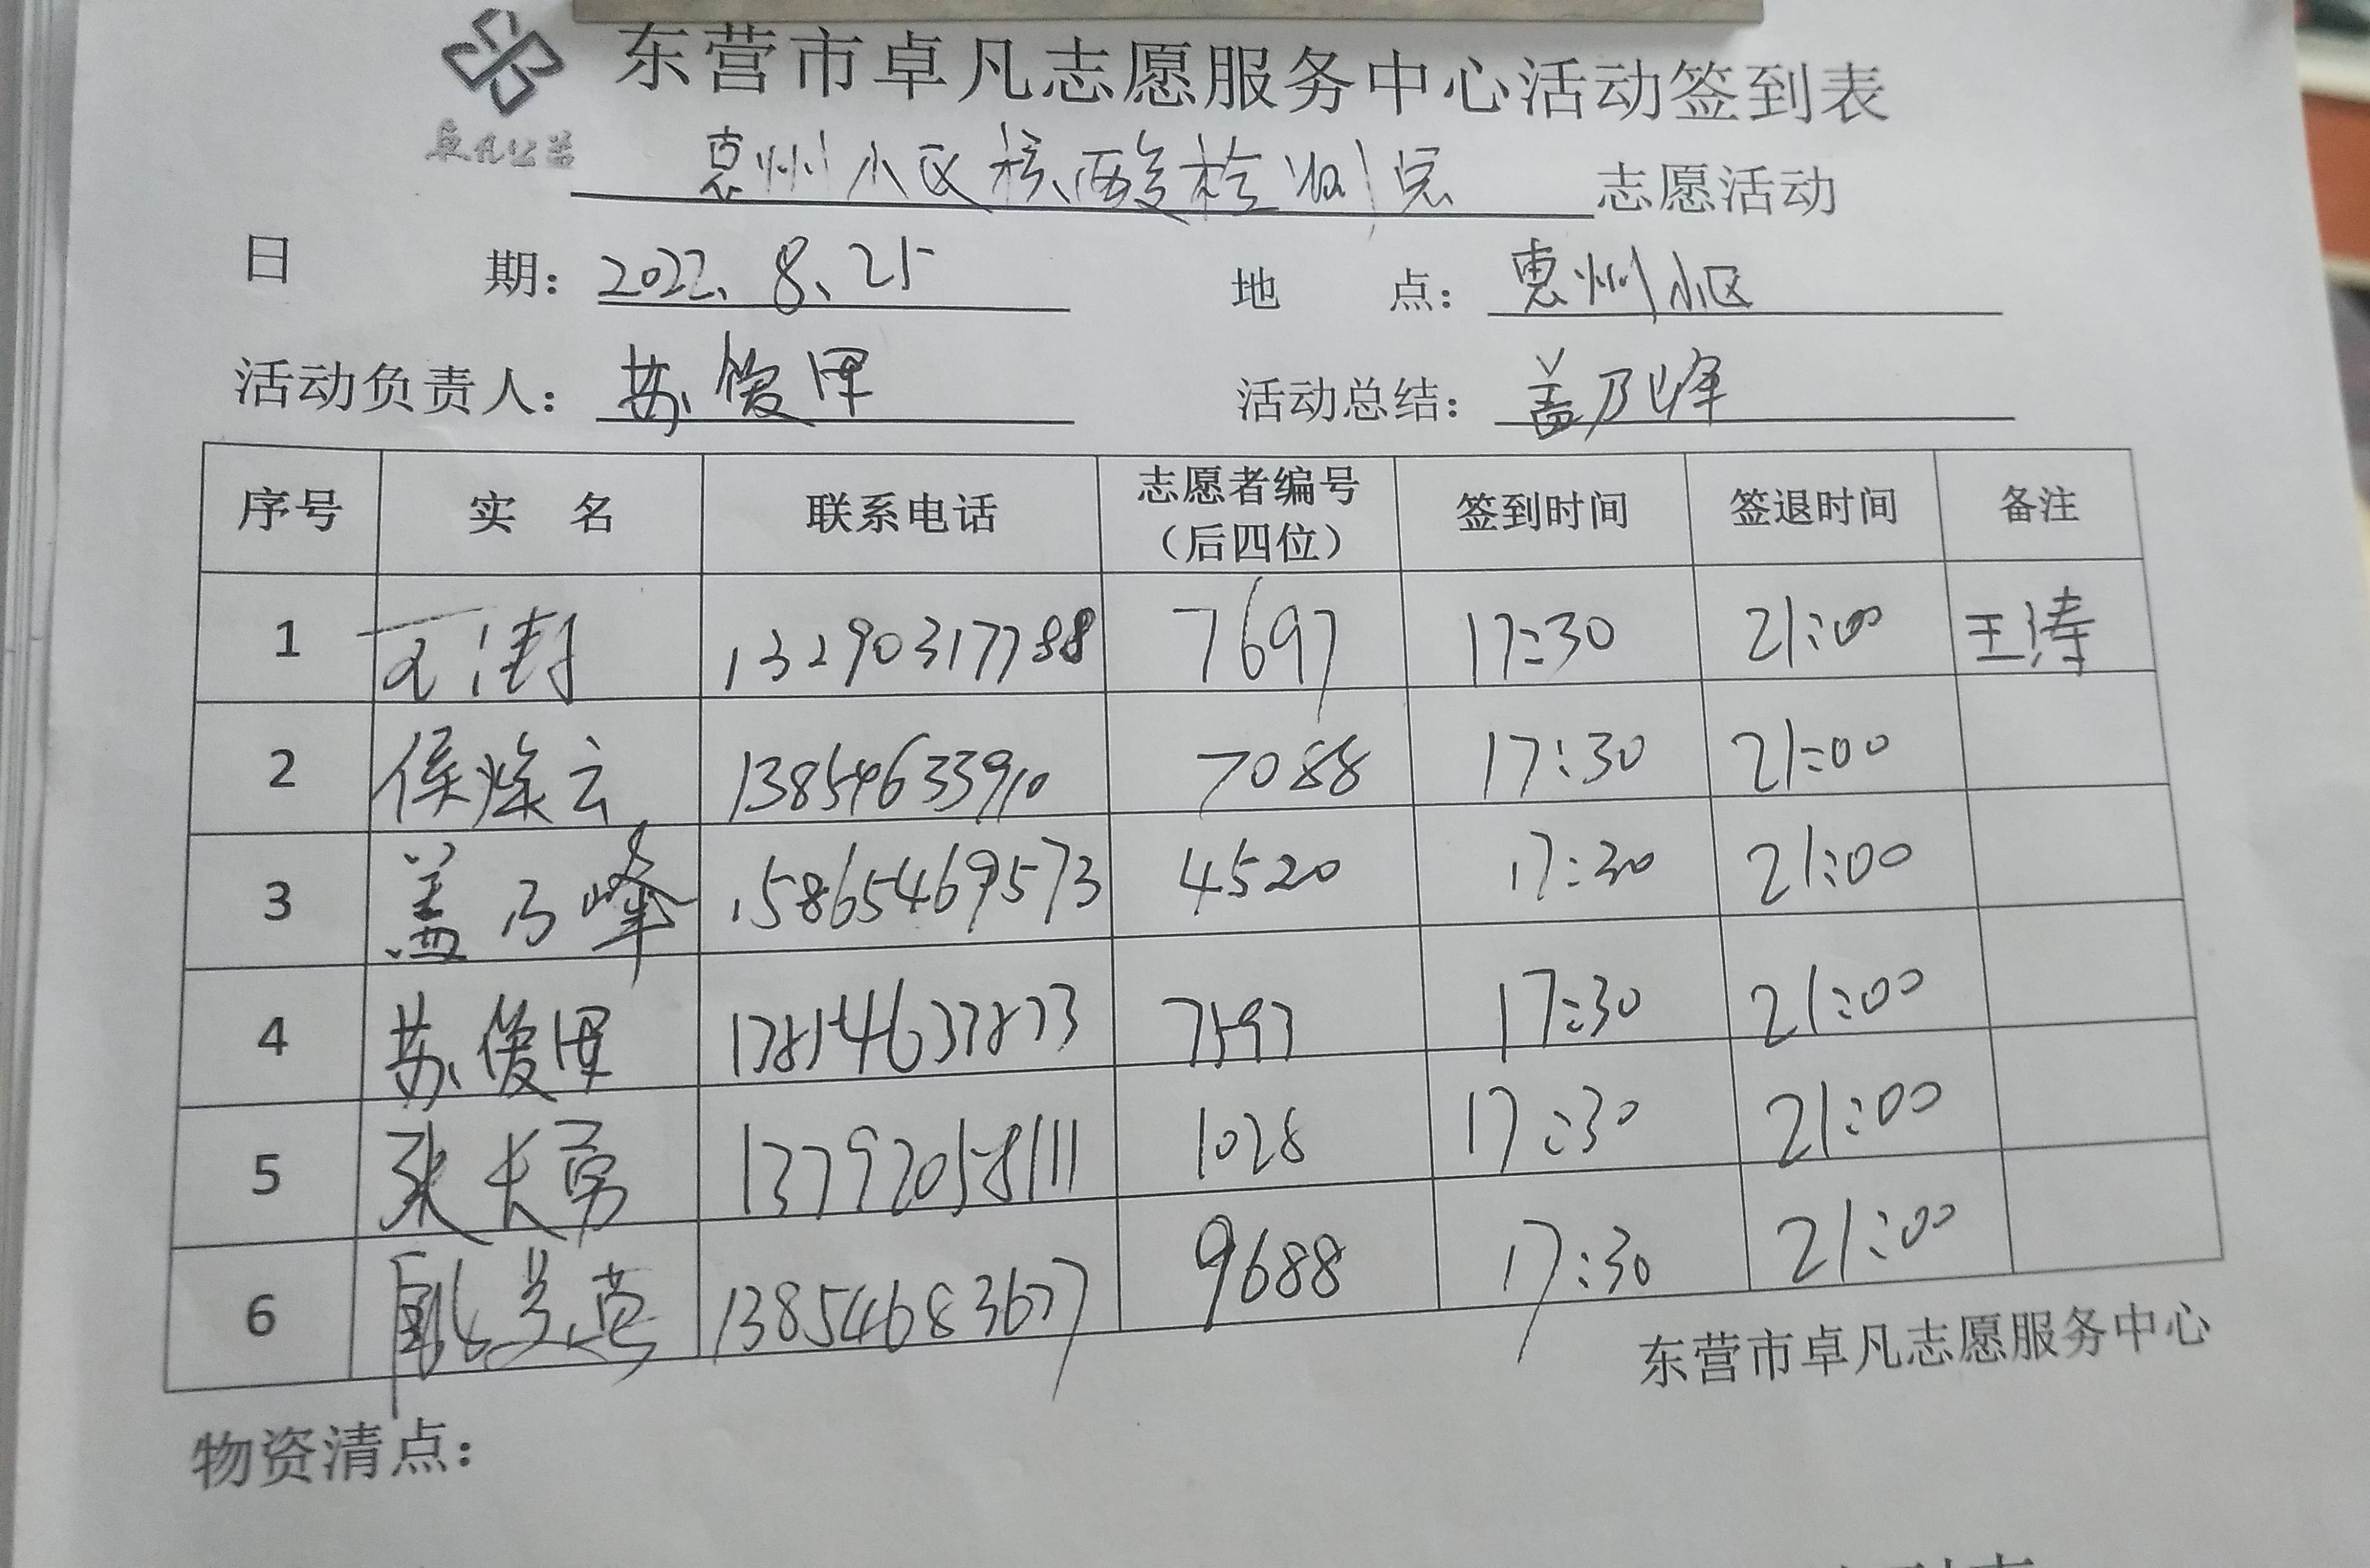 东营市卓凡志愿服务中心活动签到表
卓凡公益
惠州小区核酸检测点 志愿活动
日 期: 2022、8、25 地 点: 惠州小区
活动负责人: 苏俊甲 活动总结: 盖乃峰
序号 实 名 联系电话 志愿者编号(后四位) 签到时间 签退时间 备注
1 王涛 13290317788 7697 17:30 21:00 王涛
2 侯焕云 13854633910 7088 17:30 21:00
3 盖乃峰 15865469573 4520 17:30 21:00
4 苏俊 7597 17:30 21:00
5 张长勇 13792058111 1028 17:30 21:00
6 兰英 13854683677 9688 17:30 21:00
东营市卓凡志愿服务中心
物资清点: